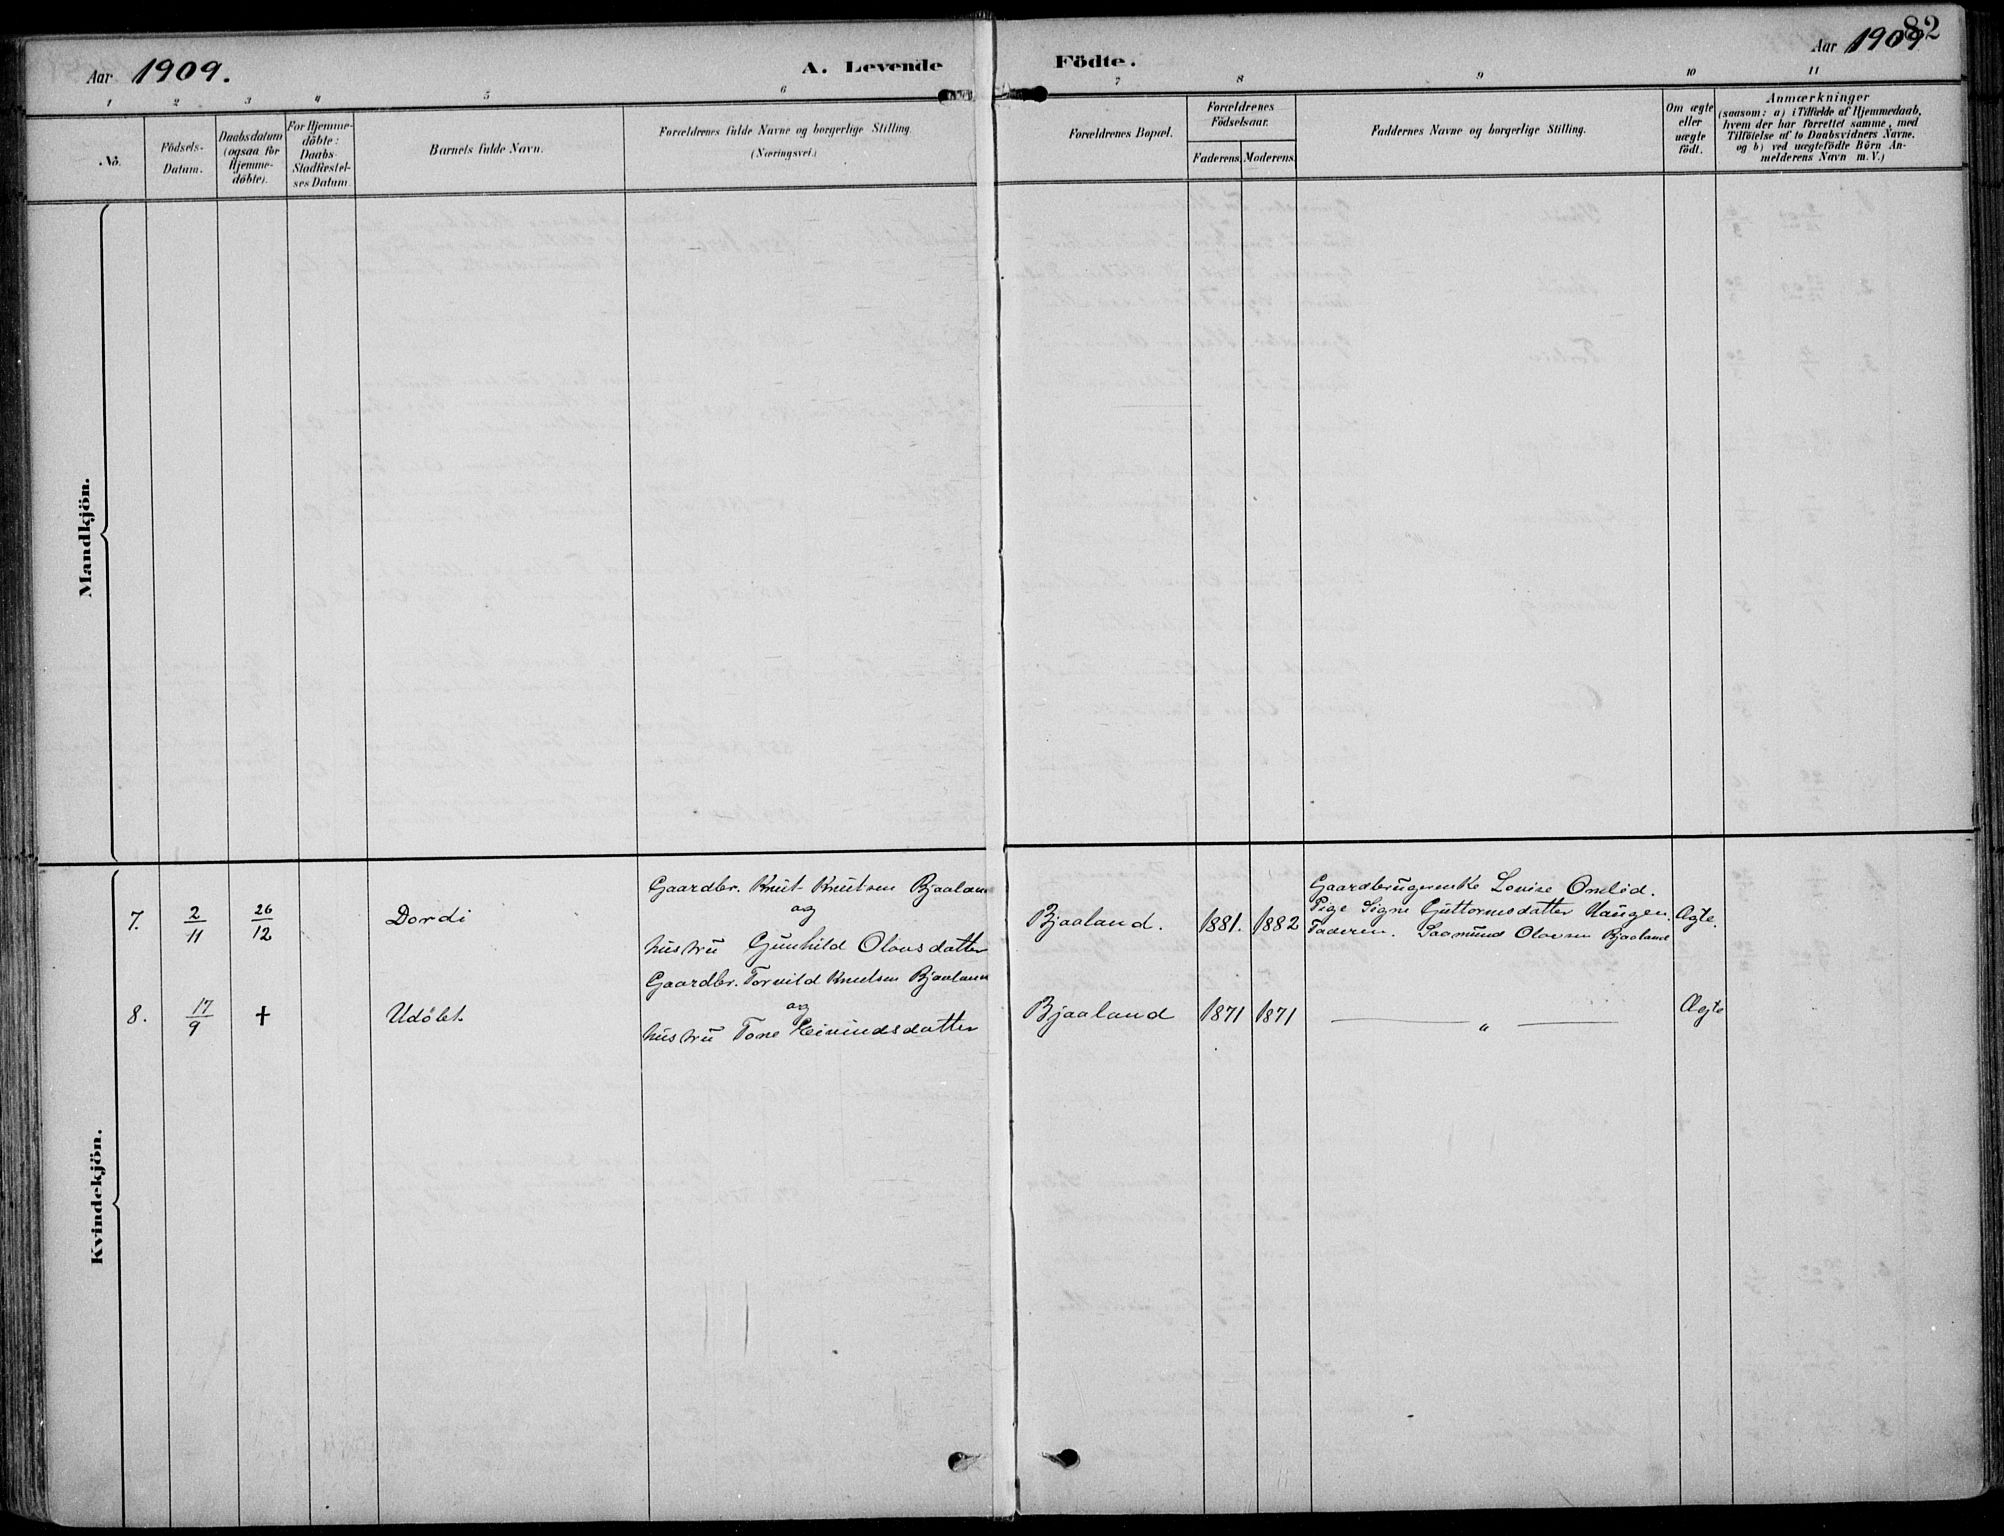 82
Aar 1909.
A. Levende Födte.
Aar 1909
1 2 3 4 5 6 7 8 9 10 11
No.
Födsels-
Datum.
Daabsdatum
(ogsaa for
Hjemme-
döbte).
For Hjemme-
döbte:
Daabs-
Stadfæstel-
ses Datum.
Barnets fulde Navn.
Forældrenes fulde Navne og borgerlige Stilling.
(Næringsvei.)
Forældrenes Bopæl.
Forældrenes
Födselsaar.
Faderens. Moderens.
Faddernes Navne og borgerlige Stilling.
Om ægte
eller
uægte
født.
Anmærkninger
(saasom: a) i Tilfælde af Hjemmedaab,
hvem der har forrettet samme, med
Tilföielse af to Daabsvidners Navne,
og b) ved uægtefödte Börn An-
melderens Navn m. V.)
Mandkjön.
Kvindekjön.
7. 2/11 26/12 Dordi
Gaardbr. Knut Knutsen Bjaaland
og
hustru Gunhild Olavsdatter
Bjaaland. 1881. 1882
Gaardbrugerenke Louise Omlid.
Pige Signe Guttormsdatter Haugen.
Faderen. Saamund Olavsen Bjaaland
Ægte.
8. 17/9 + Udøbt.
Gaardbr. Torvild Knutsen Bjaaland
og
hustru Tone Eivindsdatter
Bjaaland 1871 1871 — " — Ægte